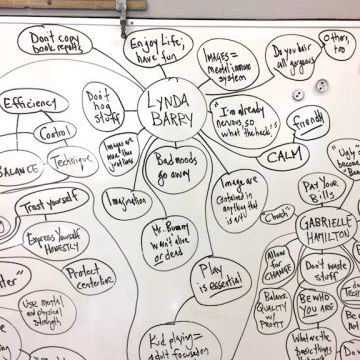 Don't copy
book reports
Enjoy Life;
have fun
IMAGES =
mental immune
system
Do you hair
all gorgeous
Others,
too
Efficiency
Don't
hog
stuff
LYNDA
BARRY
"I'm already
nervous, so
what the heck!"
friendly
Control
Technique
BALANCE
Images are
more than
just
Bad moods
go away
CALM
"Ugly
Trust yourself
Imagination
Image are
contained in
anything that
is art!
PAY YOUR
BILLS
"Church"
GABRIELLE
HAMILTON
Express Yourself
HONESTLY
Mr. Bunny
wasn't alive
or dead
Allow
for
CHANGE
Don't waste
stuff
Protect
centerline
Play
is essential
Use mental
and physical
strength
Balance
QUALITY w/
PROFIT
BE WHO
YOU ARE
Kid playing =
adult focused on
What are the
basic things